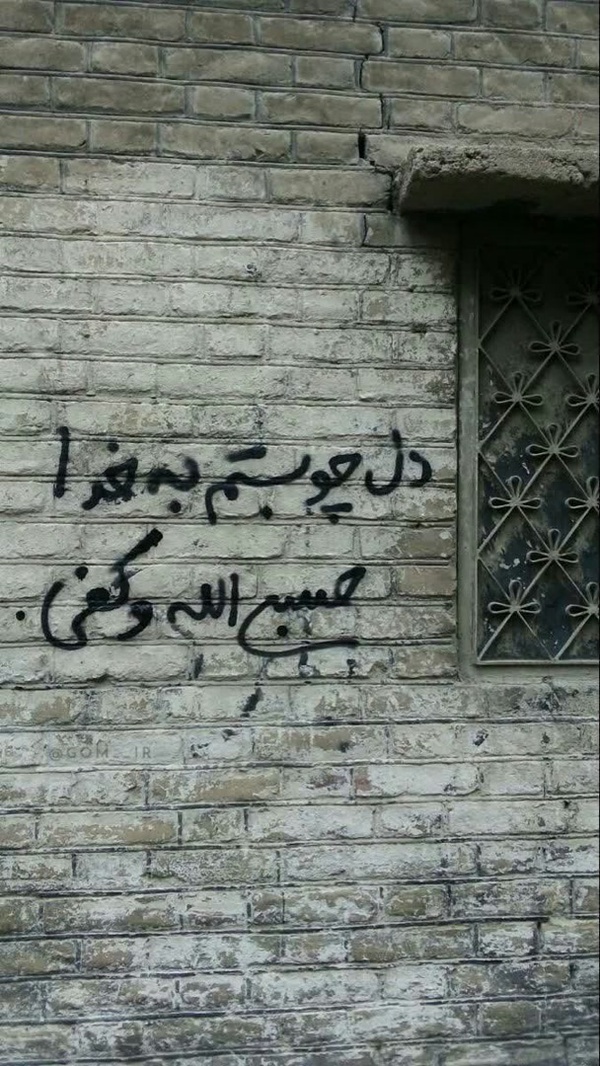 دل چو بستم به خدا
حسبی الله و کفی.
@GOM__IR